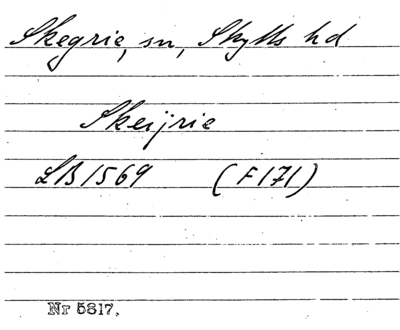 Skegrie, sn, Skytts hd
Skeijrie
LB 1569 (F 171)
Nr 5817.